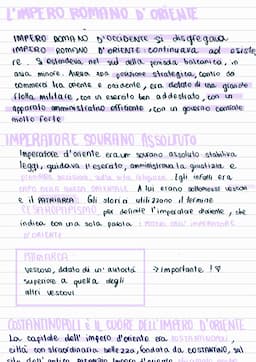 L'IMPERO ROMANO D'ORIENTE
IMPERO ROMANO D'OCCIDENTE si disgregava
IMPERO ROMANO D'ORIENTE continuava ad esiste
re. Si estendeva nel sud della penisola balcanica, in
asia minore. Aveva una posizione strategica, centro di
commercio tra oriente e occidente, era dotato di una grande
flotta militare, con un esercito ben addestrato, con un
apparato amministrativo efficiente, con un governo centrale
molto forte
IMPERATORE SOVRANO ASSOLUTO
Imperatore d'oriente era un sovrano assoluto stabiliva
leggi, guidava l'esercito, amministrava la giustizia e
prendeva decisioni sulla vita religiosa. Egli infatti era
capo della chiesa ORIENTALE. A lui erano sottomessi vescovi
e il PATRIARCA. Gli storici utilizzano il termine
CESAROPAPISMO, per definire l'imperatore d'oriente, che
indica con una sola parola i poteri dell'IMPERATORE
D'ORIENTE
PATRIARCA
vescovo, dotato di un'autorità → importante!
superiore a quella degli
altri vescovi
COSTANTINOPOLI È IL CUORE DELL'IMPERO D'ORIENTE
La capitale dell'impero d'oriente era COSTANTINOPOLI,
città con straordinaria bellezza, fondata da COSTANTINO, sul